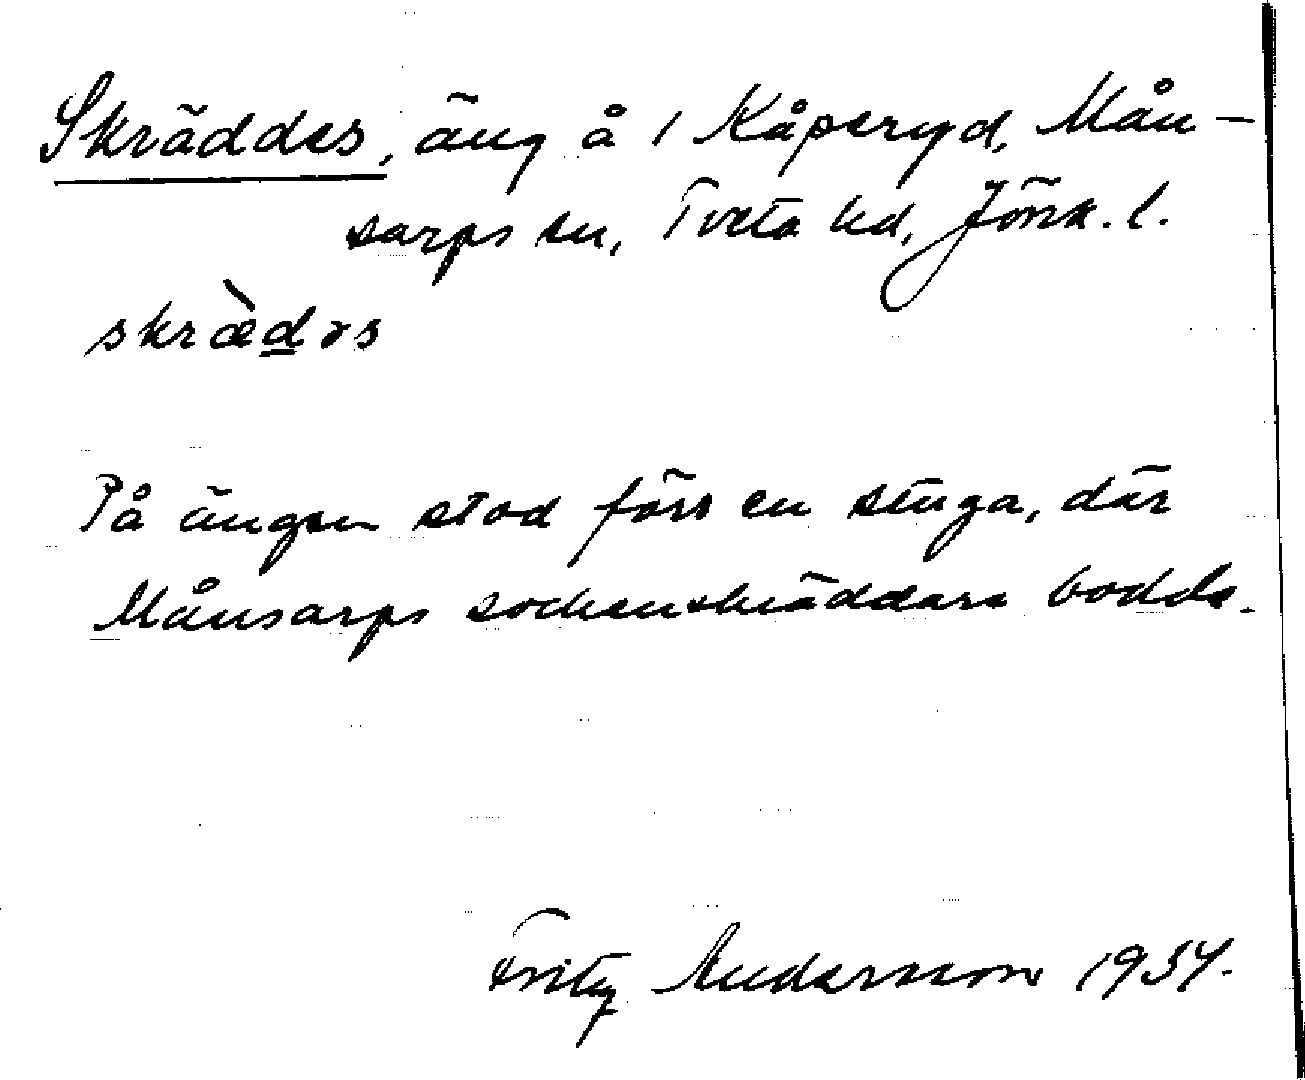 Skräddes, äng å 1 Kåperyd, Mån-
sarps sn, Tveta hd, Jönk. l.
skræ̀d̲əs
På ängen stod förr en stuga, där
Månsarps sockenskräddare bodde.
Fritz Andersson 1934.